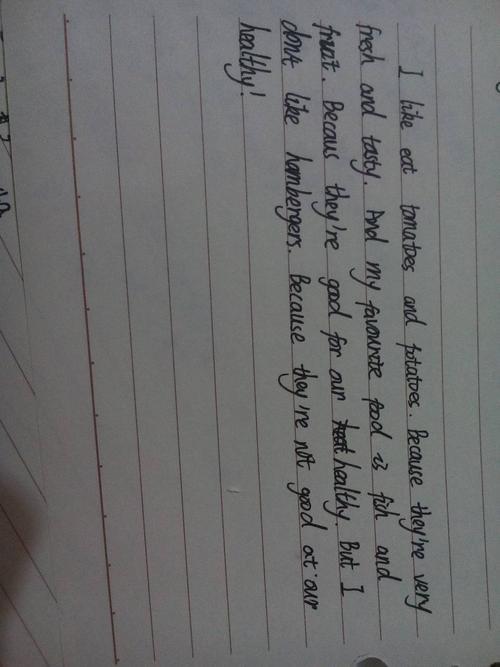 I like eat tomatoes and potatoes. Because they're very
fresh and tasty. And my favourite food is fish and
fruit. Becaus they're good for our healthy. But I
dont like hambergers. Because they're not good at our
healthy!